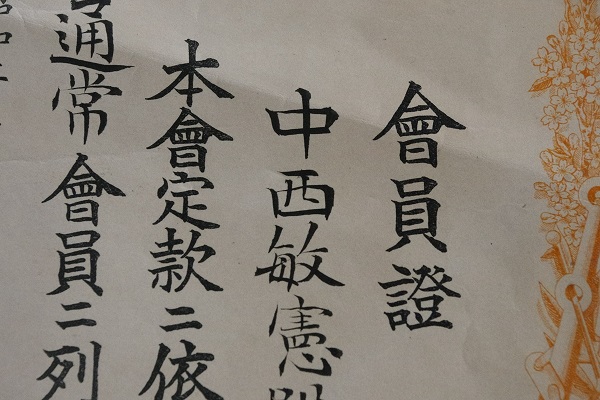 會員證
中西敏憲
本會定款ニ依
通常會員ニ列
昭和